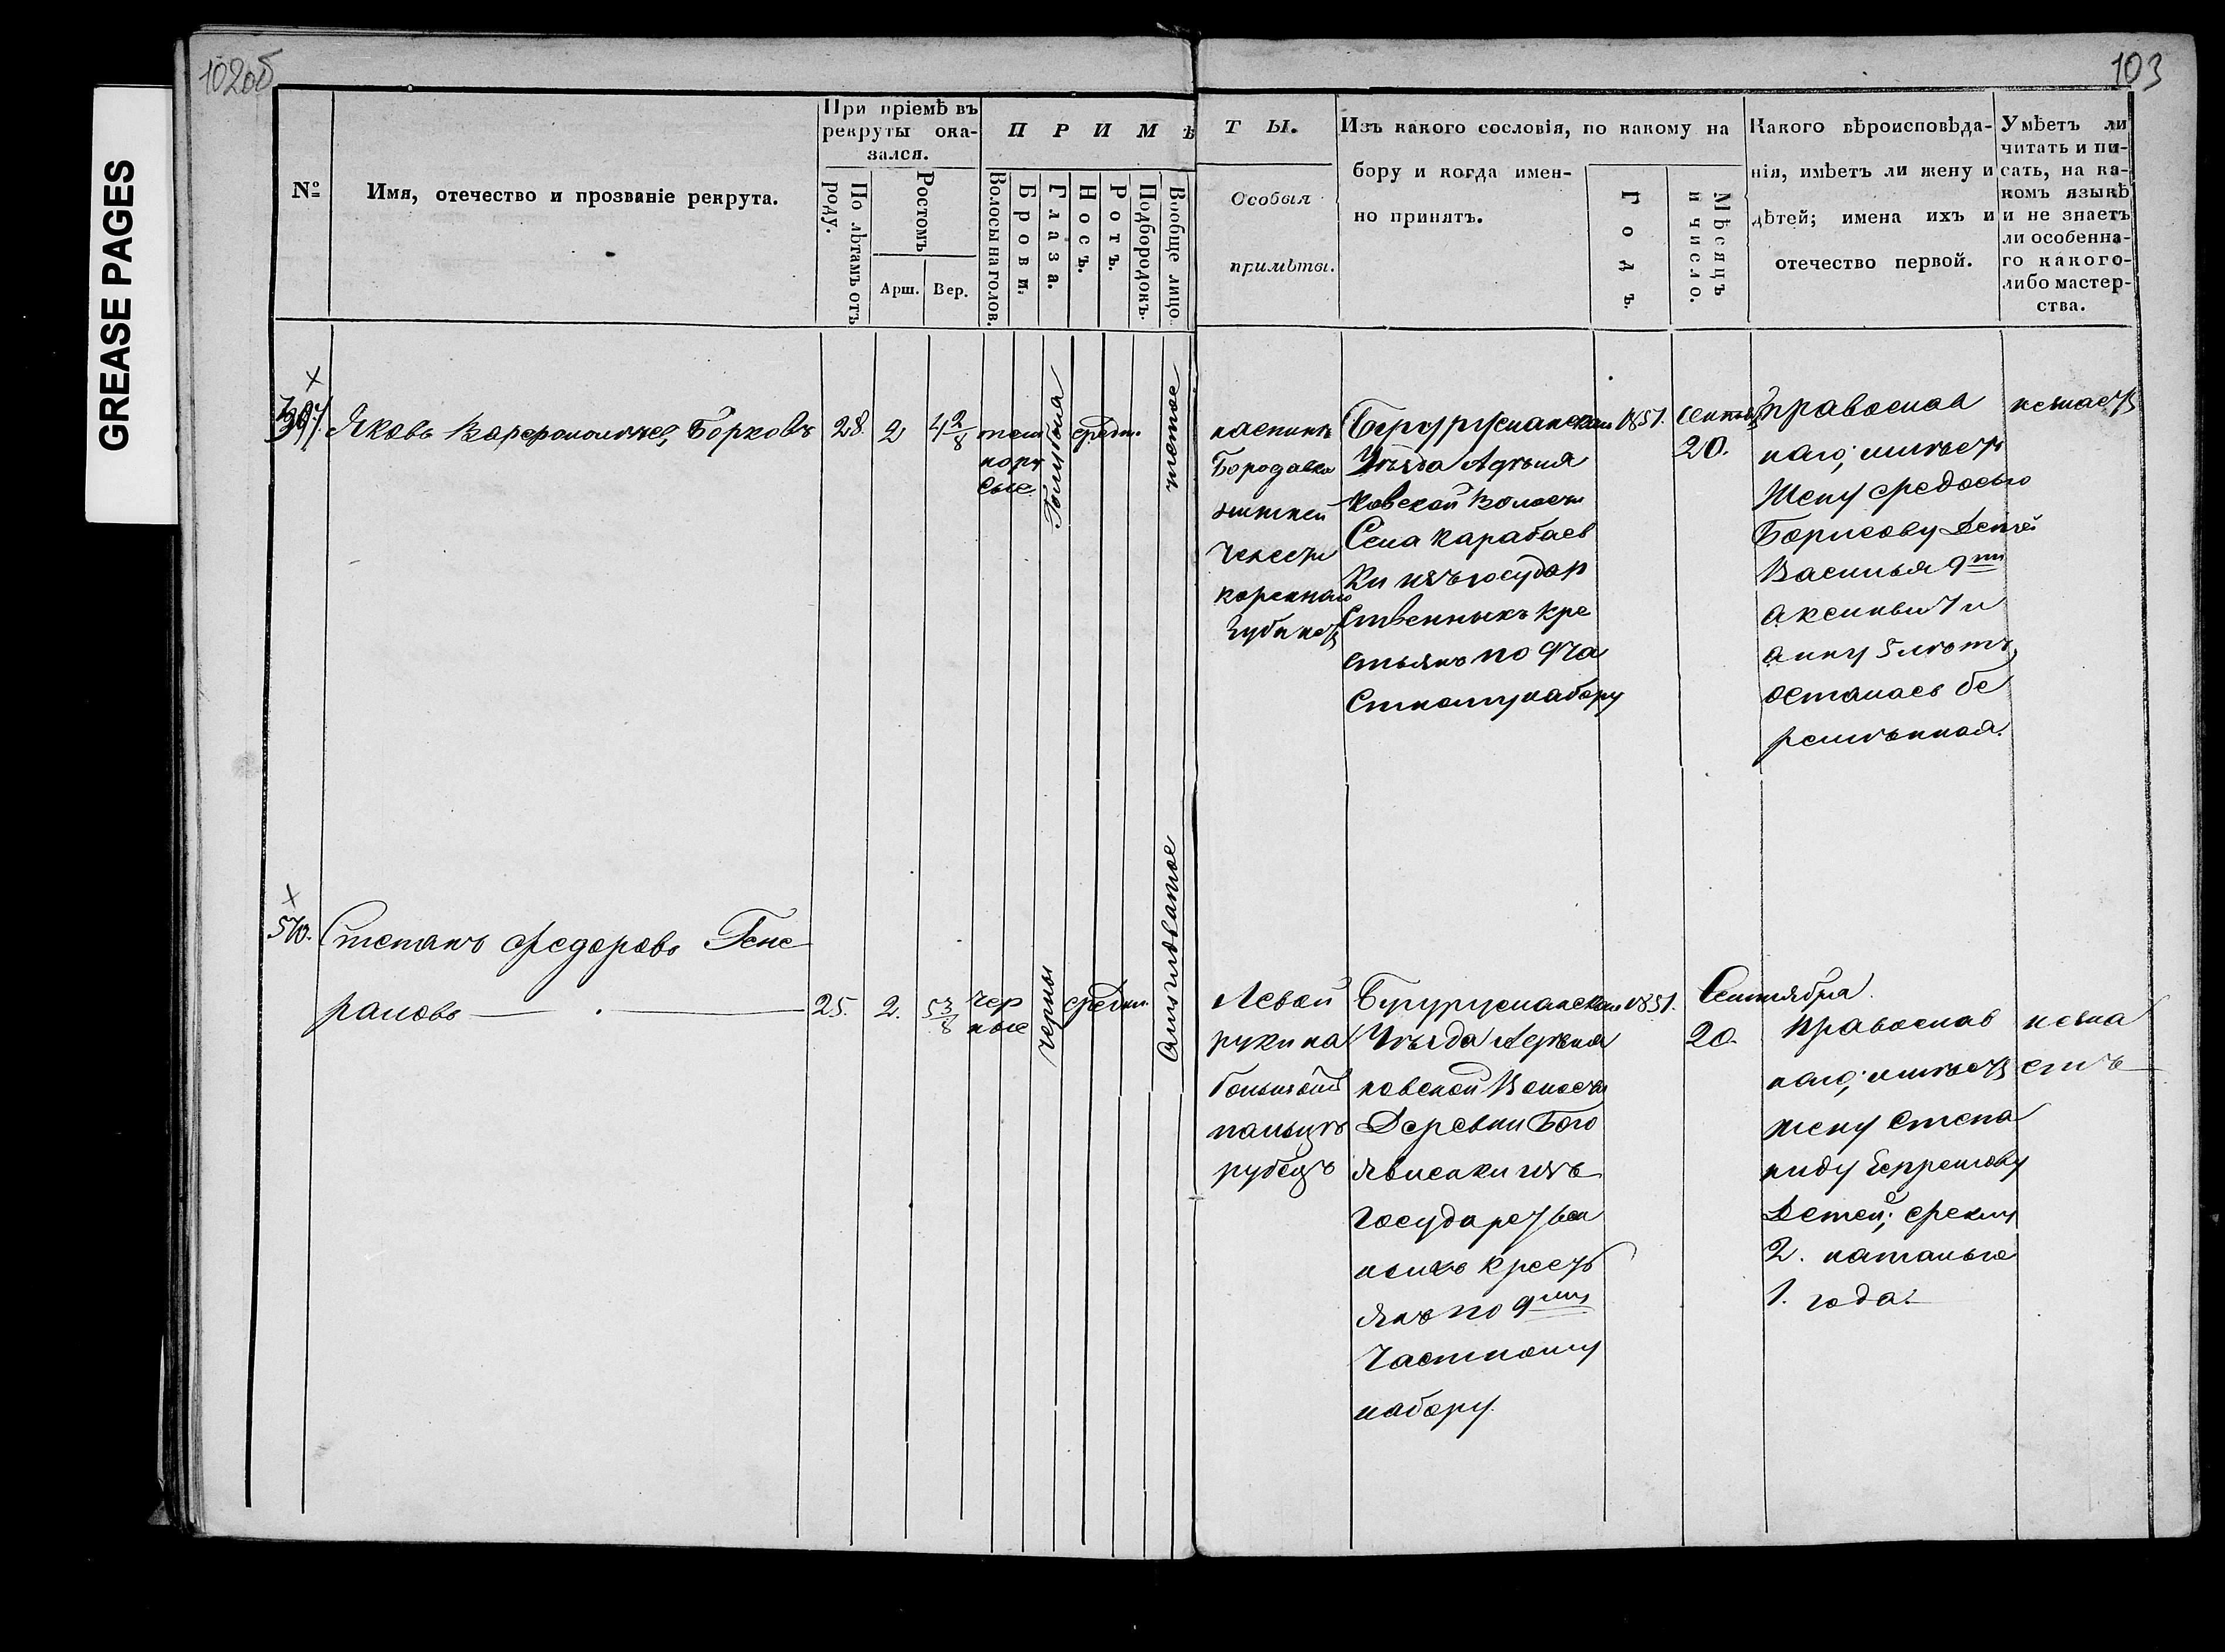 102об
103
GREASE PAGES
№
Имя, отечество и прозваніе рекрута.
При пріемѣ въ
рекруты ока-
зался.
По лѣтамъ отъ
роду.
Ростомъ
Арш.
Вер.
ПРИМѢ
Волосы на голов.
Брови.
Глаза.
Носъ.
Ротъ.
Подбородокъ.
Вообще лицо.
ТЫ.
Особыя
примѣты.
Изъ какого сословія, по какому на
бору и когда имен-
но принятъ.
Годъ.
Мѣсяцъ
и число.
Какого вѣроисповѣда-
нія, имѣетъ ли жену и
дѣтей; имена ихъ и
отечество первой.
Умѣетъ ли
читать и пи-
сать, на ка-
комъ языкѣ
и не знаетъ
ли особенна-
го какого-
либо мастер-
ства.
Яковъ Варфоломѣевъ Борковъ
28.
2
4 2/8
темн
нору
сые
Голубыя
средн.
чистое
наспинѣ
Бородавка
нижней
челюсти
кореннаго
зуба нетъ
Бугурусланскаго
Уѣзда
ковской Волости
Села Карабаев
ки изъ государ
ственныхъ кре
стьянъ по 9 ча
стному набору
1851.
Сентяб
20.
православ
наго; имѣетъ
жену Федосью
Борисову Детей
Василья 9ти
аксинью 7 и
анну 5 летъ,
осталась бе
ременная.
незнаетъ
570.
Степанъ Федоровъ Гене
раловъ
25.
2.
5 3/8
чер
ные
черны
средн.
Левой
руки на
большомъ
пальцѣ
рубецъ
Бугурусланскаго
Уѣзда
ковской Волости
Деревни Бого
явленки изъ
Государствен
ныхъ кресть
янъ по 9му
Частному
набору.
1851.
Сентября
20.
православ
наго; имѣетъ
жену Степа
ниду Ефремову
Детей; Феклу
2. наталью
1. года.
незна
етъ